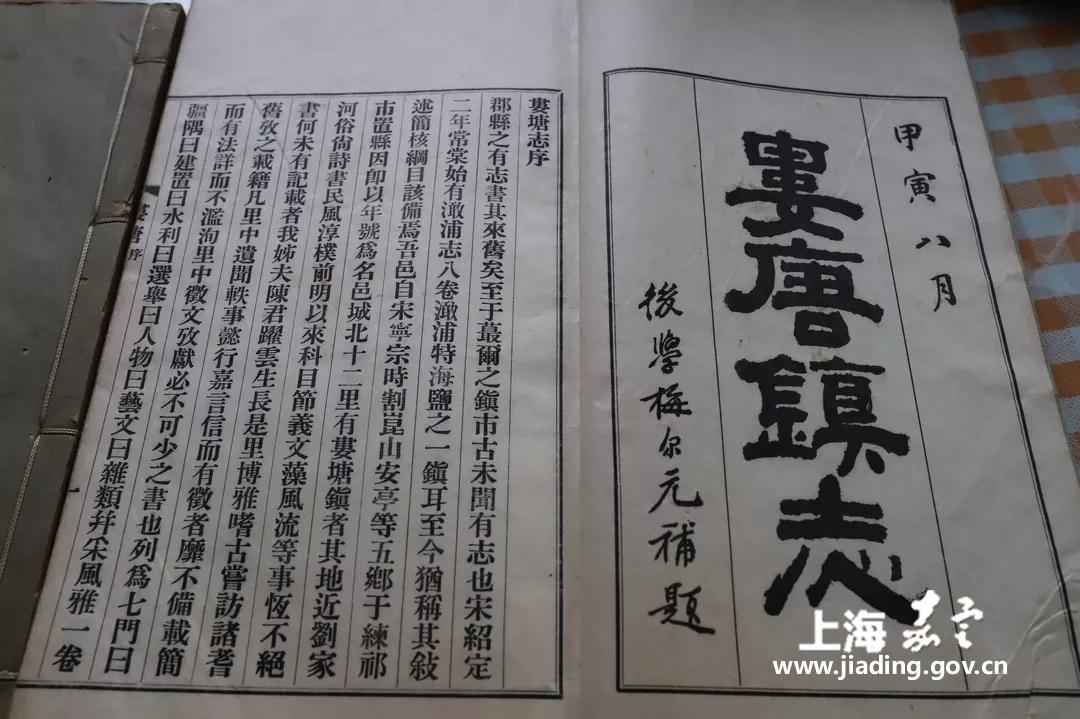 甲寅八月
婁唐鎮志
後學梅尔元補題
婁塘志序
郡縣之有志書其來舊矣至于蕞爾之鎮市古未聞有志也宋紹定
二年常棠始有澉浦志八卷澉浦特海鹽之一鎮耳至今猶稱其敍
述簡核綱目該備焉吾邑自宋寧宗時割崑山安亭等五鄉于練祁
市置縣因卽以年號爲名邑城北十二里有婁塘鎮者其地近劉家
河俗尙詩書民風淳樸前明以來科目節義文藻風流等事恆不絕
書何未有記載者我姊夫陳君躍雲生長是里博雅嗜古嘗訪諸耆
舊攷之載籍凡里中遺聞軼事懿行嘉言信而有徵者靡不備載簡
而有法詳而不濫洵里中徵文攷獻必不可少之書也列爲七門曰
疆隅曰建置曰水利曰選舉曰人物曰藝文曰雜類幷采風雅一卷
婁塘序
一
上海嘉定
www.jiading.gov.cn